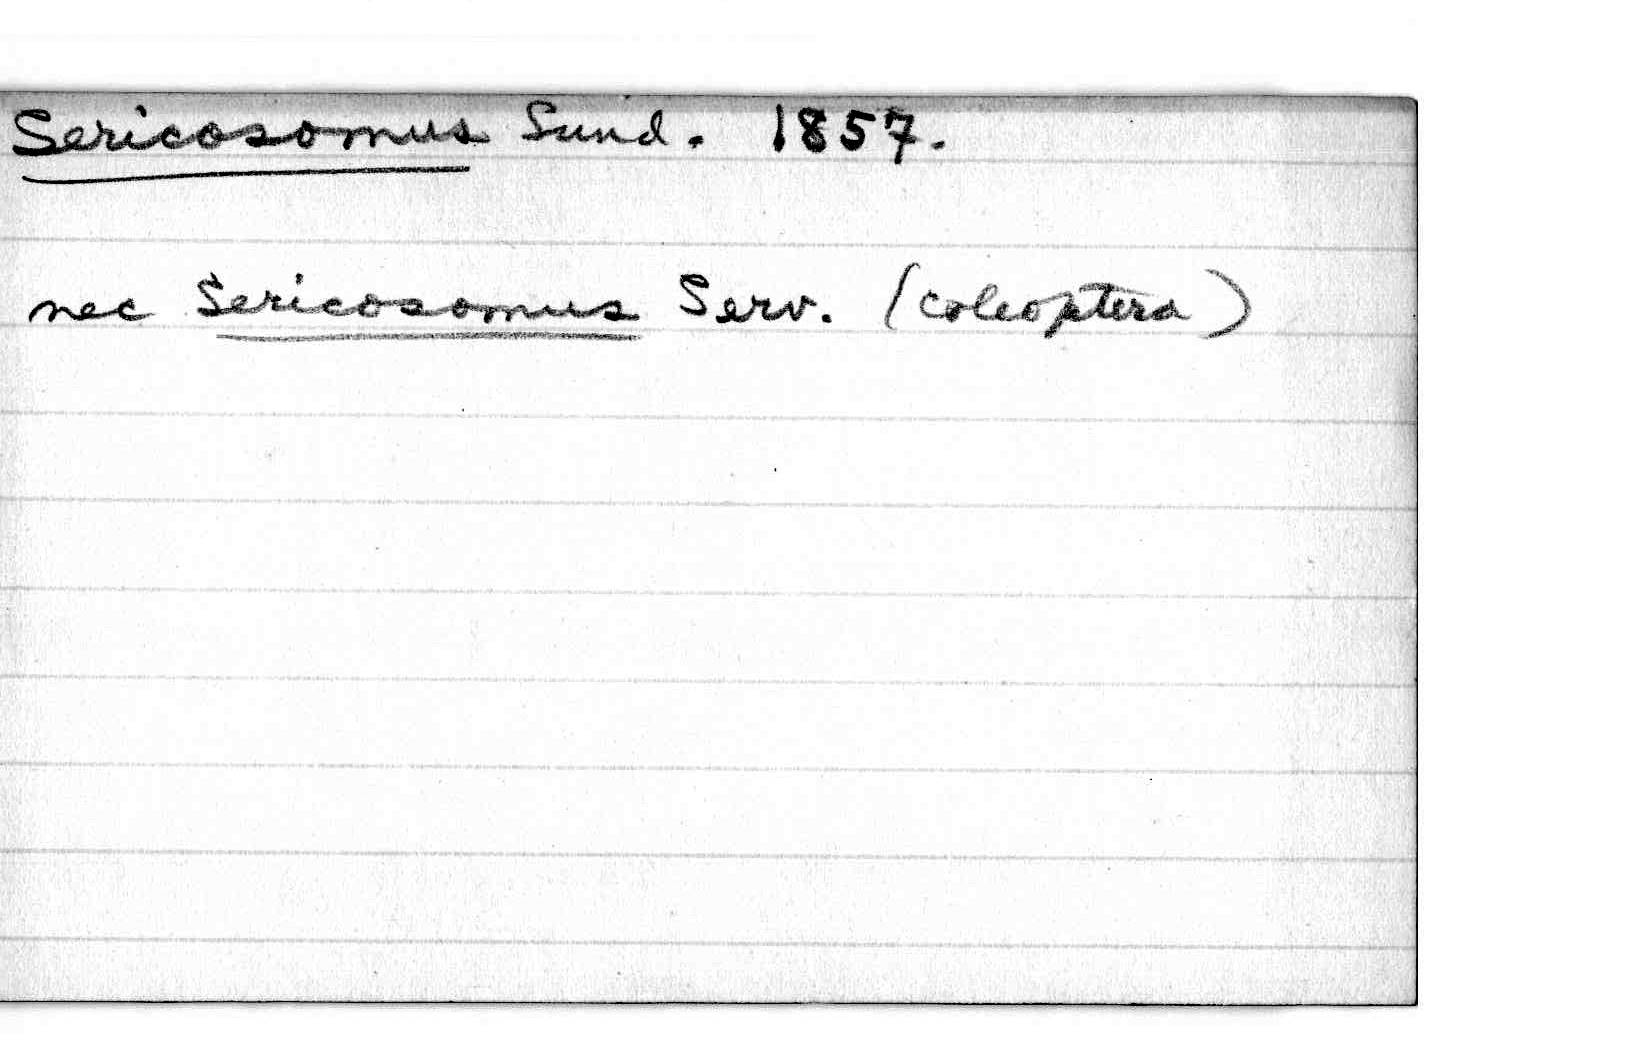 Sericosomus Sund. 1857.
nec Sericosomus Serv. (coleoptera)